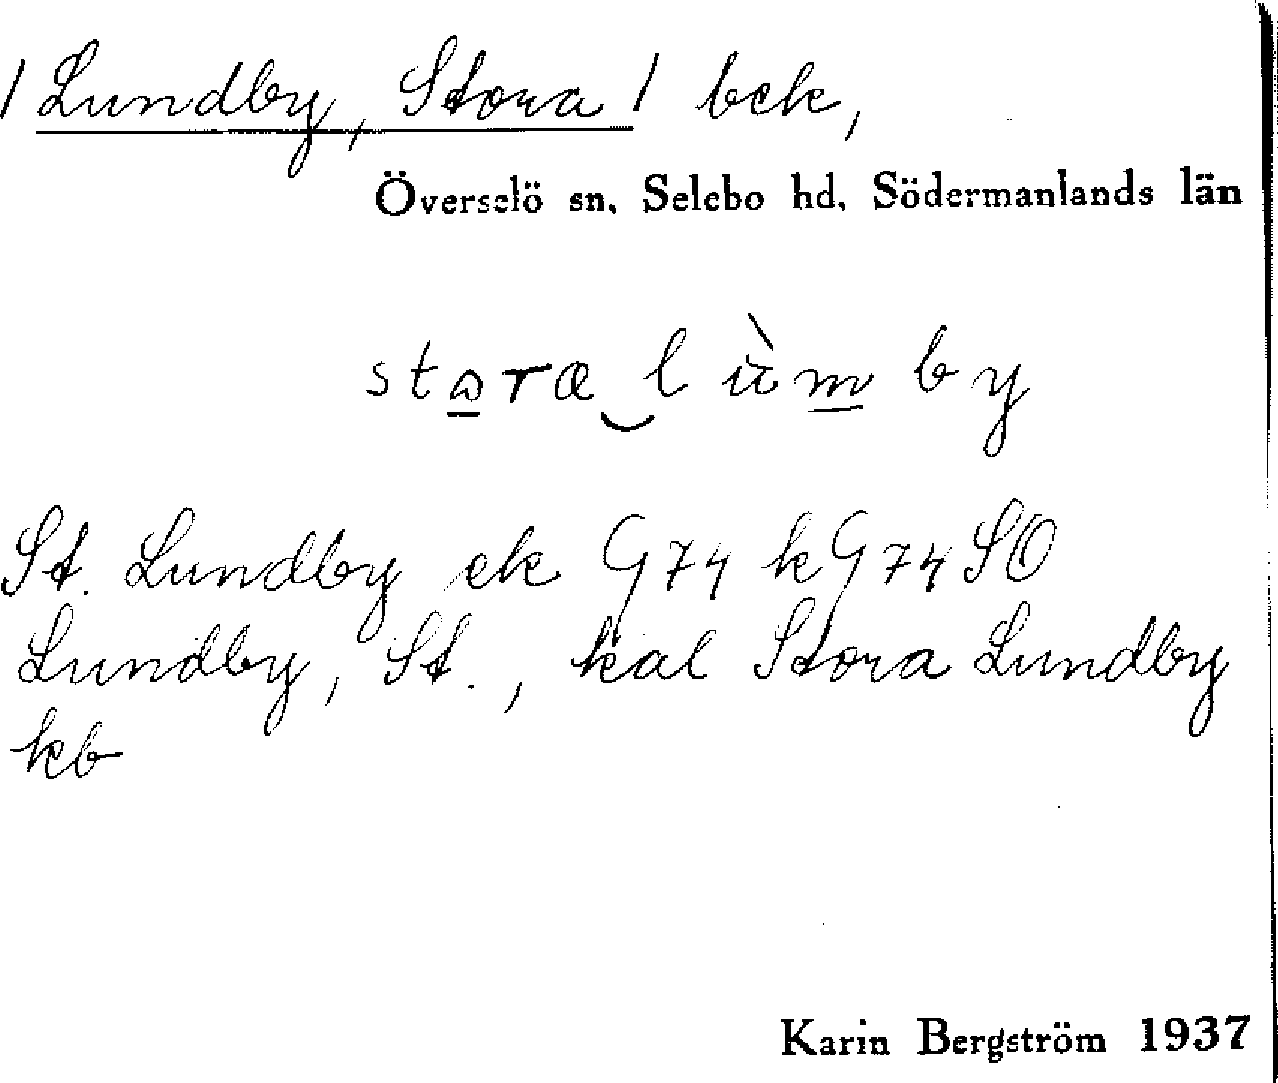 / Lundby, Stora / bek,
Överselö sn, Selebo hd, Södermanlands län
stora‿lùmby
St. Lundby ek G74 kG74SO
Lundby, St., kal Stora Lundby
kb
Karin Bergström 1937